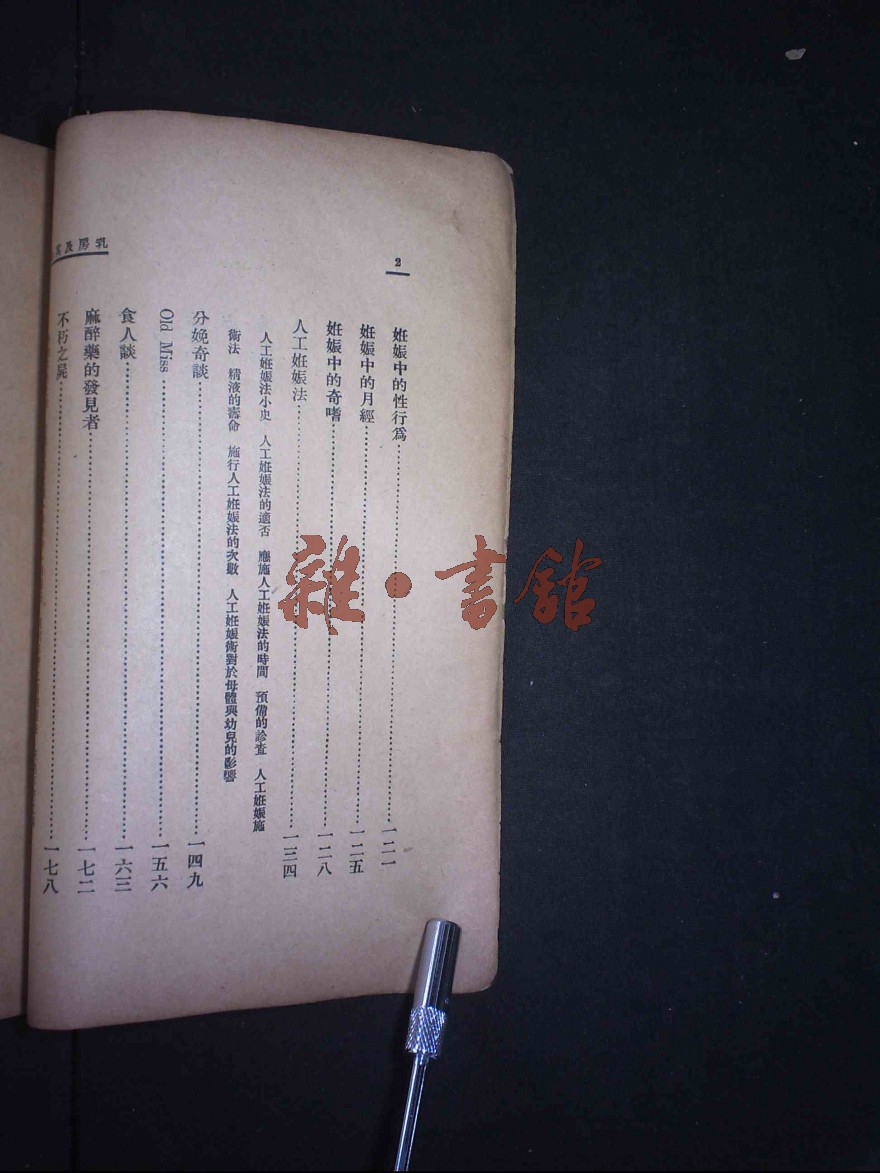 2
乳房及其
姙娠中的性行爲 一二一
姙娠中的月經 一二五
姙娠中的奇嗜 一二八
人工姙娠法 一三四
人工姙娠法小史 人工姙娠法的適否 應施人工姙娠法的時間 預備的診查 人工姙娠施
術法 精液的壽命 施行人工姙娠法的次數 人工姙娠術對於母體與幼兒的影響
分娩奇談 一四九
Old Miss 一五六
食人談 一六三
麻醉藥的發見者 一七二
不朽之屍 一七八
雜·書館